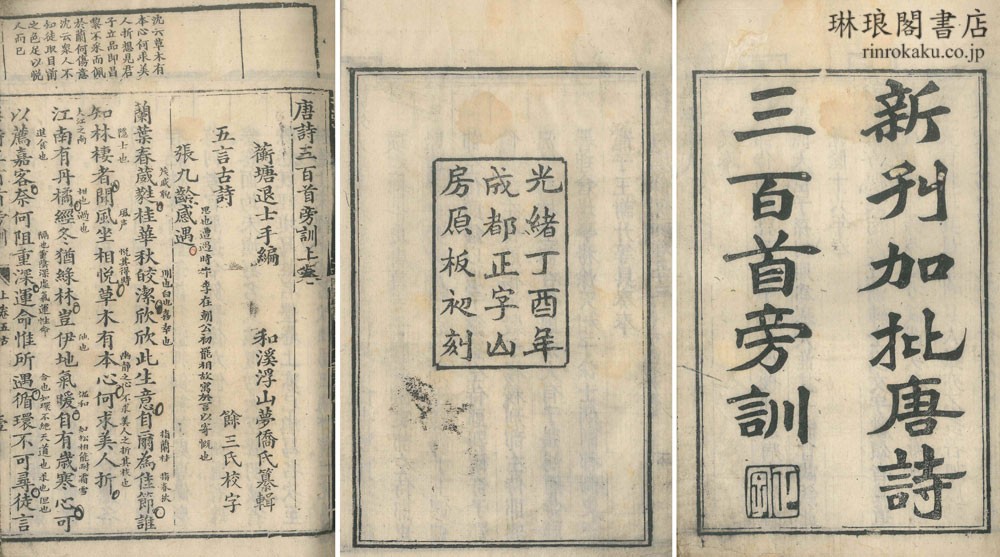 琳琅閣書店
rinrokaku.co.jp
新刋加批唐詩
三百首旁訓
光緒丁酉年
成都正字山
房原板初刻
唐詩三百首旁訓上卷
蘅塘退士手編
和溪浮山夢僑氏纂輯
餘三氏校字
五言古詩
張九齡感遇
蘭葉春葳蕤桂華秋皎潔欣欣此生意自爾為佳節誰
知林棲者聞風坐相悅草木有本心何求美人折
江南有丹橘經冬猶綠林豈伊地氣暖自有歲寒心可
以薦嘉客奈何阻重深運命惟所遇循環不可尋徒言
沈云草木有
本心何求美
人折想見君
子立品即昌
黎不采而佩
於蘭何傷意
沈云眾人不
知徒取目前
之色足以悅
人而已